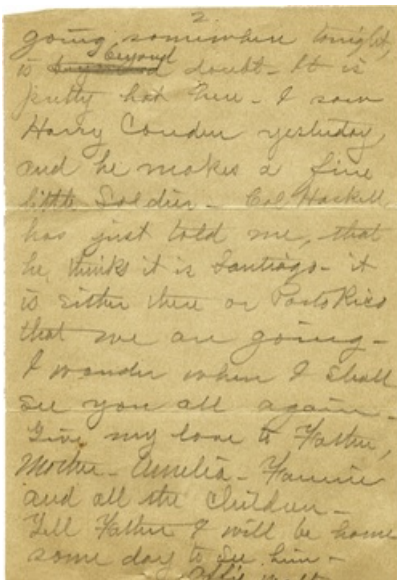 2.
going somewhere tonight,
is beyond doubt - It is
pretty hot here - I saw
Harry Conder yesterday,
and he makes a fine
little Soldier - Col Haskell
has just told me, that
he, thinks it is Santiago - it
is either there or Porto Rico
that we are going -
I wonder when I shall
see you all again -
Give my love to Father,
Mother - Amelia - Fannie
and all the Children -
Tell Father I will be home
some day to see him -